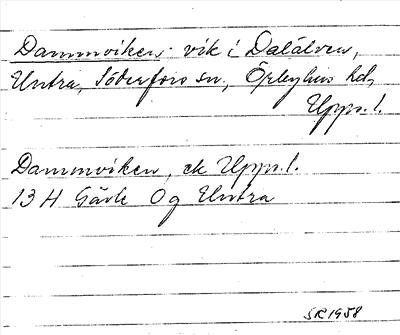 Dammviken: vik i Dalälven,
Untra, Söderfors sn, Örbyhus hd,
Upps. l.
Dammviken, ek Upps. l.
13 H Gävle Og Untra
SR 1958